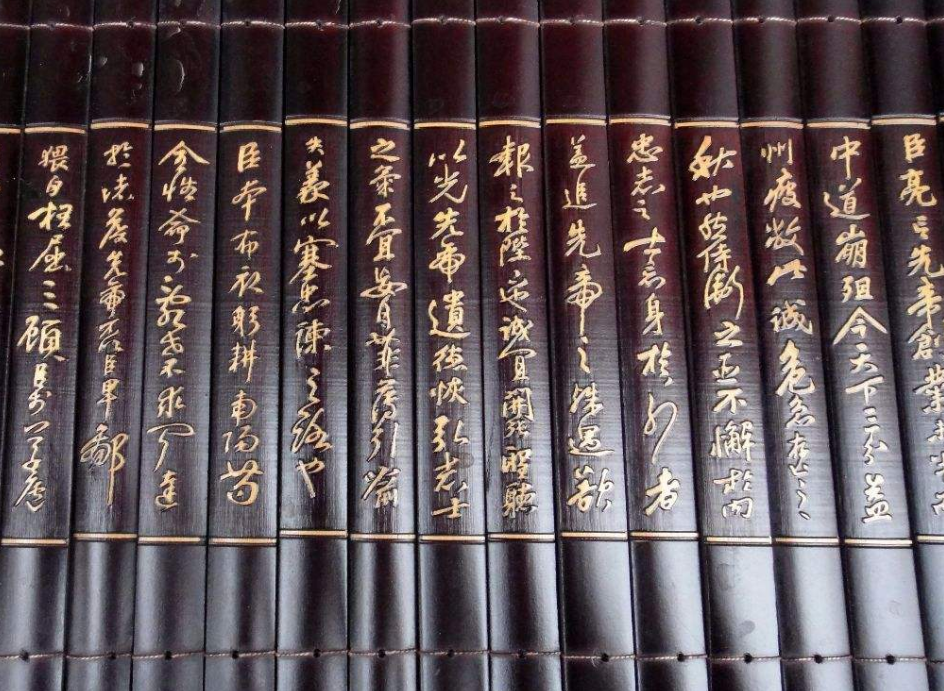 臣亮言先帝創業未半而
中道崩殂今天下三分益
州疲敝此誠危急存亡之
秋也然侍衛之臣不懈於內
忠志之士忘身於外者
蓋追先帝之殊遇欲
報之於陛下也誠宜開張聖聽
以光先帝遺德恢弘志士
之氣不宜妄自菲薄引喻
失義以塞忠諫之路也
臣本布衣躬耕南陽苟
全性命於亂世不求聞達
於諸侯先帝不以臣卑鄙
猥自枉屈三顧臣於草廬